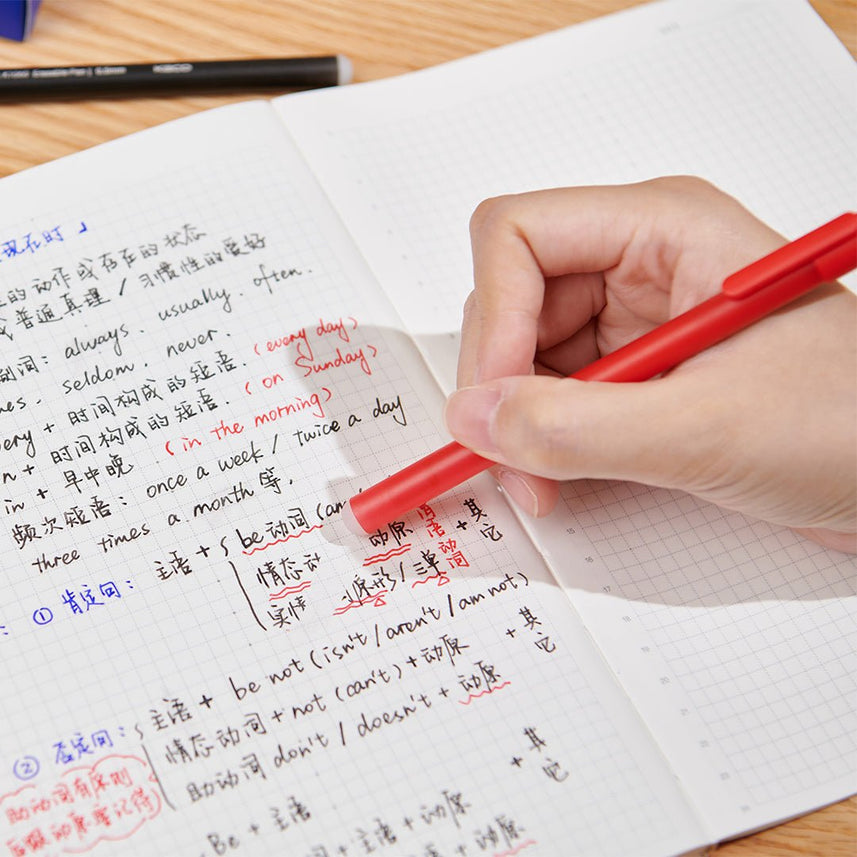 Erasable Pen | 0.5mm KACO
现在时」
的动作或存在的状态
普通真理 / 习惯性的爱好
always. usually. often.
seldom. never.
+ 时间构成的短语. (every day)
+ 时间构成的短语. (on Sunday)
in + 早中晚 (in the morning)
频次短语: once a week / twice a day
three times a month 等.
① 肯定句: 主语 + be 动词 (am
情态动 动原 + 其它
实情 原形 / 三单
② 否定句: 主语 + be not (isn't / aren't / am not)
情态动词 + not (can't) + 动原 + 其它
助动词 don't / doesn't + 动原
助动词有原则
后跟动原要记得
Be + 主语 + 其它
词 + 主语 + 动原
+ 主语 + 动原
15
16
17
20
21